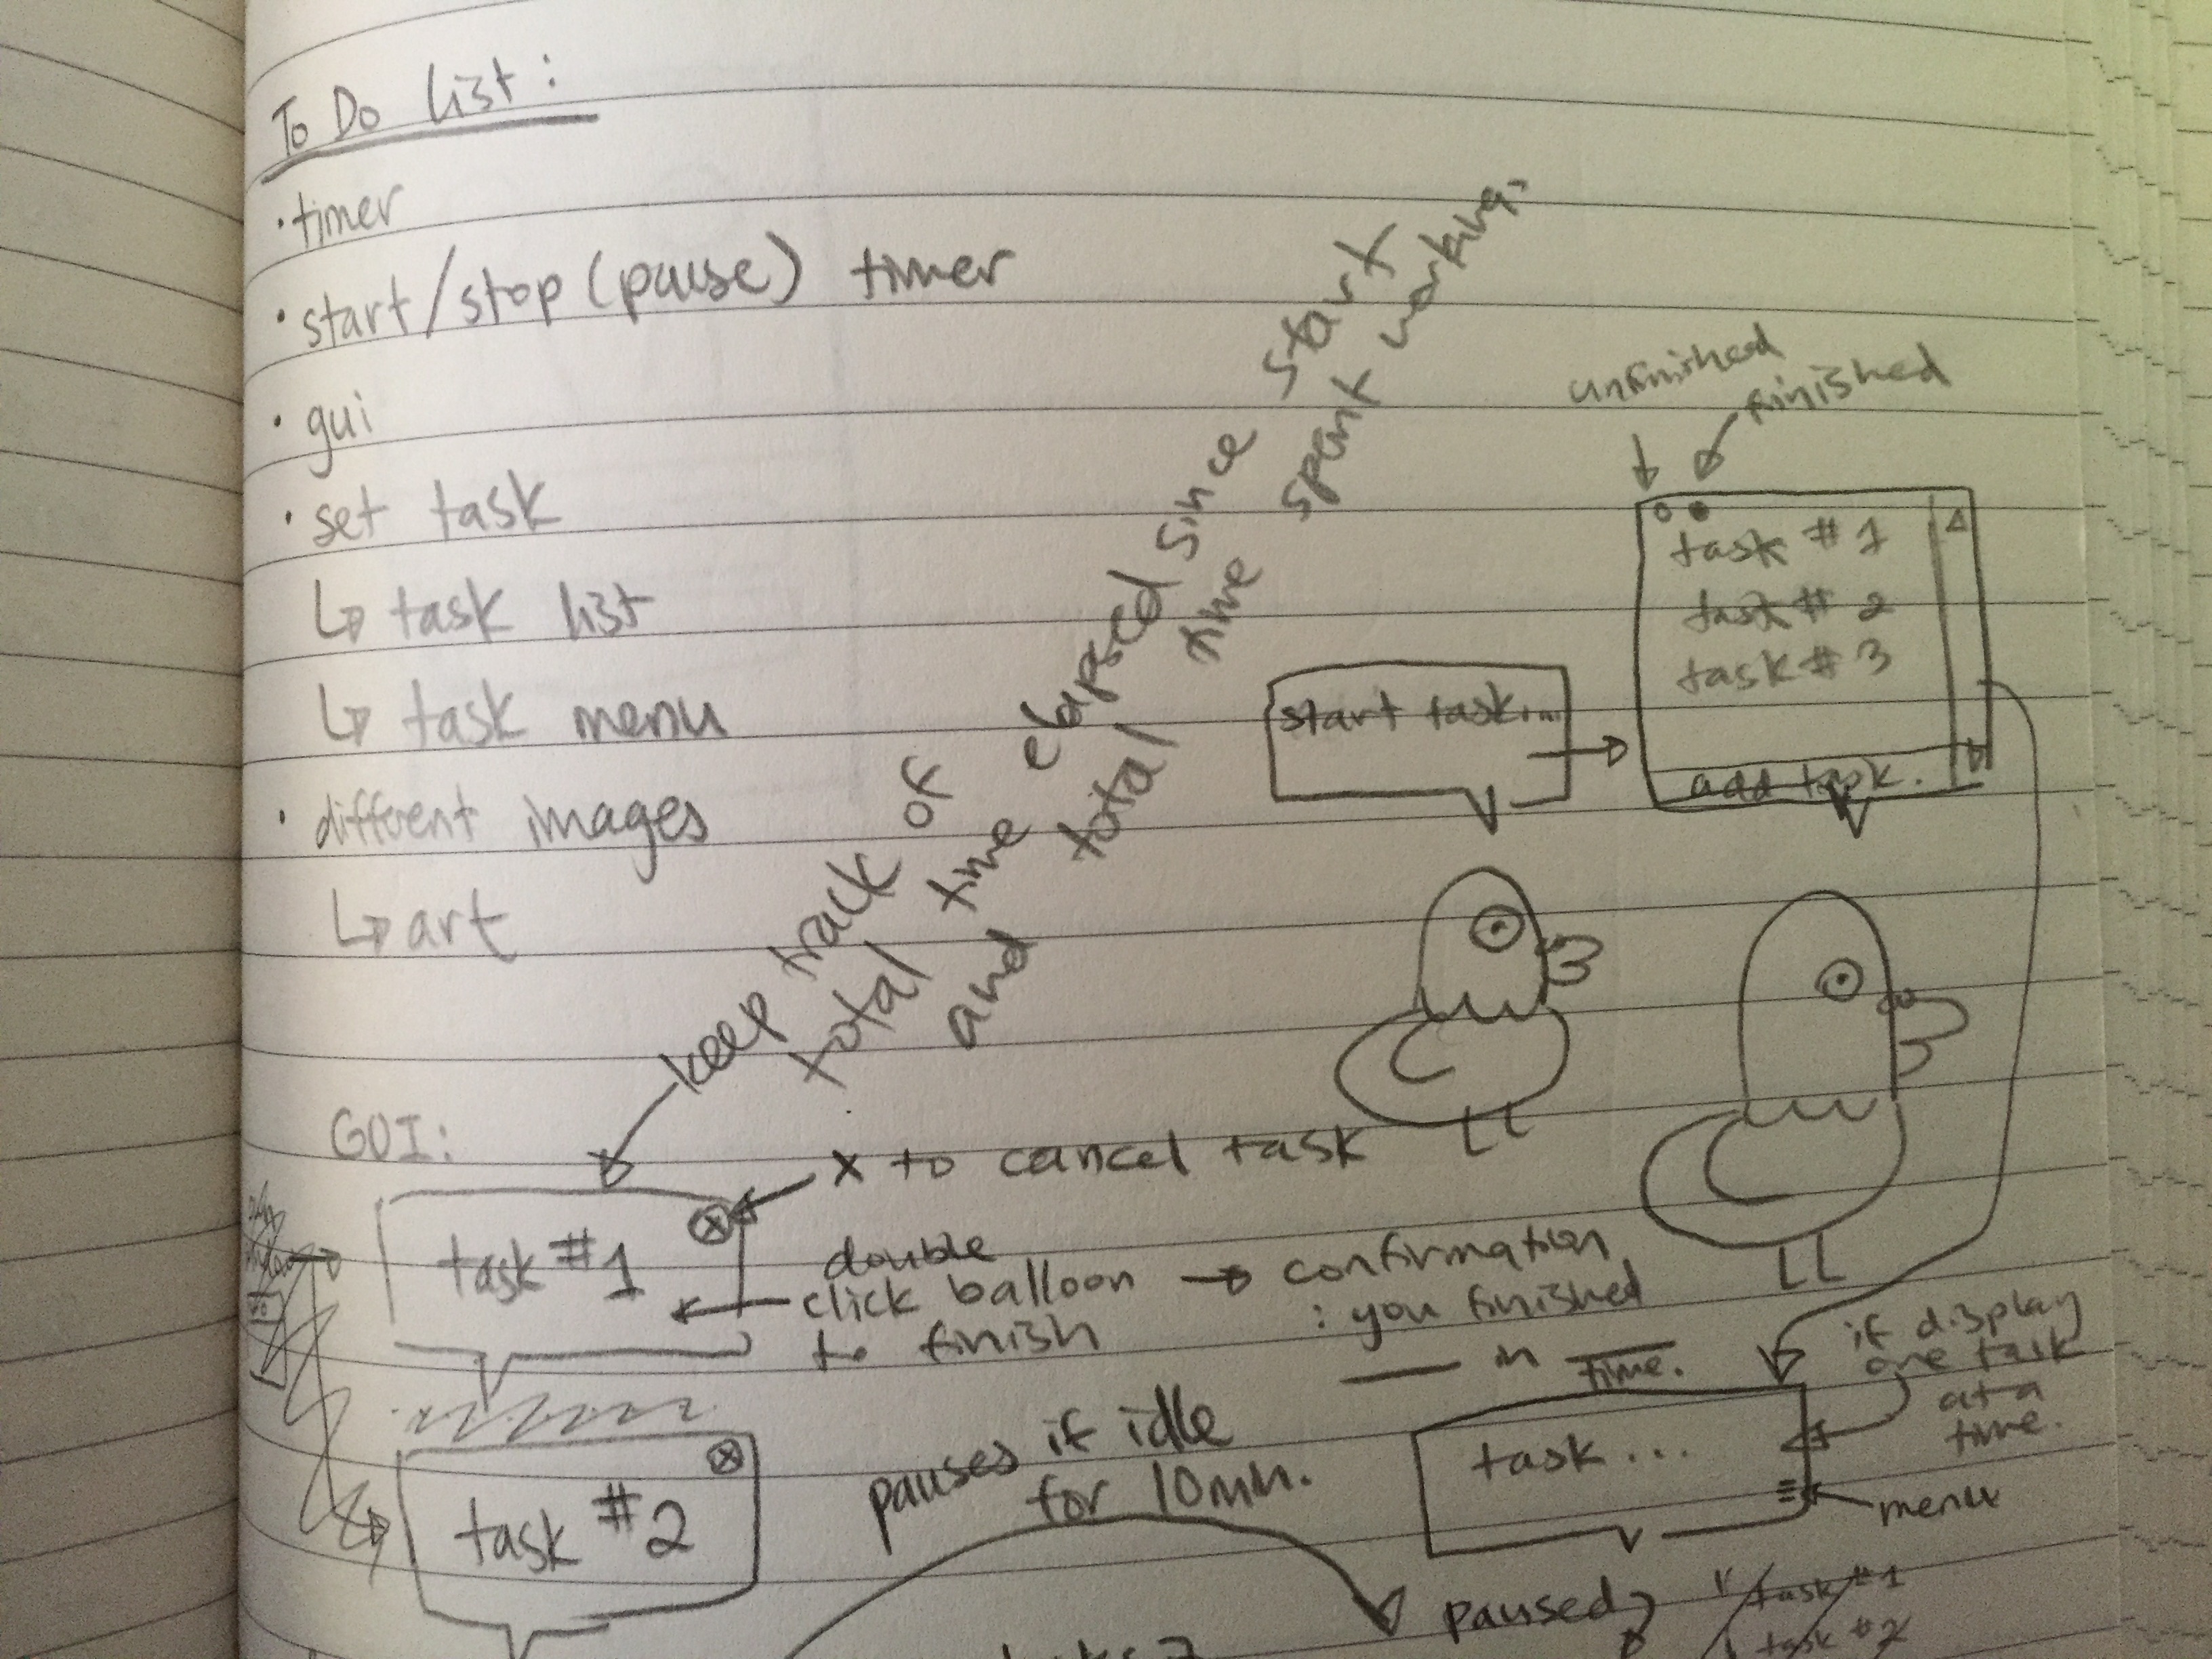 To Do list:
• timer
• start/stop (pause) timer
• gui
• set task
↳ task list
↳ task menu
• different images
↳ art
keep track of
total time elapsed since start
and total time spent working
unfinished
finished
task #1
task #2
task #3
add task.
start task...
GUI:
x to cancel task
task #1
double
click balloon → confirmation
to finish
: you finished
___ in ___
time.
if display
one task
at a
time.
task...
menu
task #2
pauses if idle
for 10min.
paused
task #1
task #2